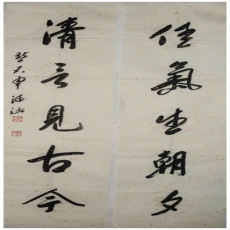 佳氣生朝夕
清言見古今